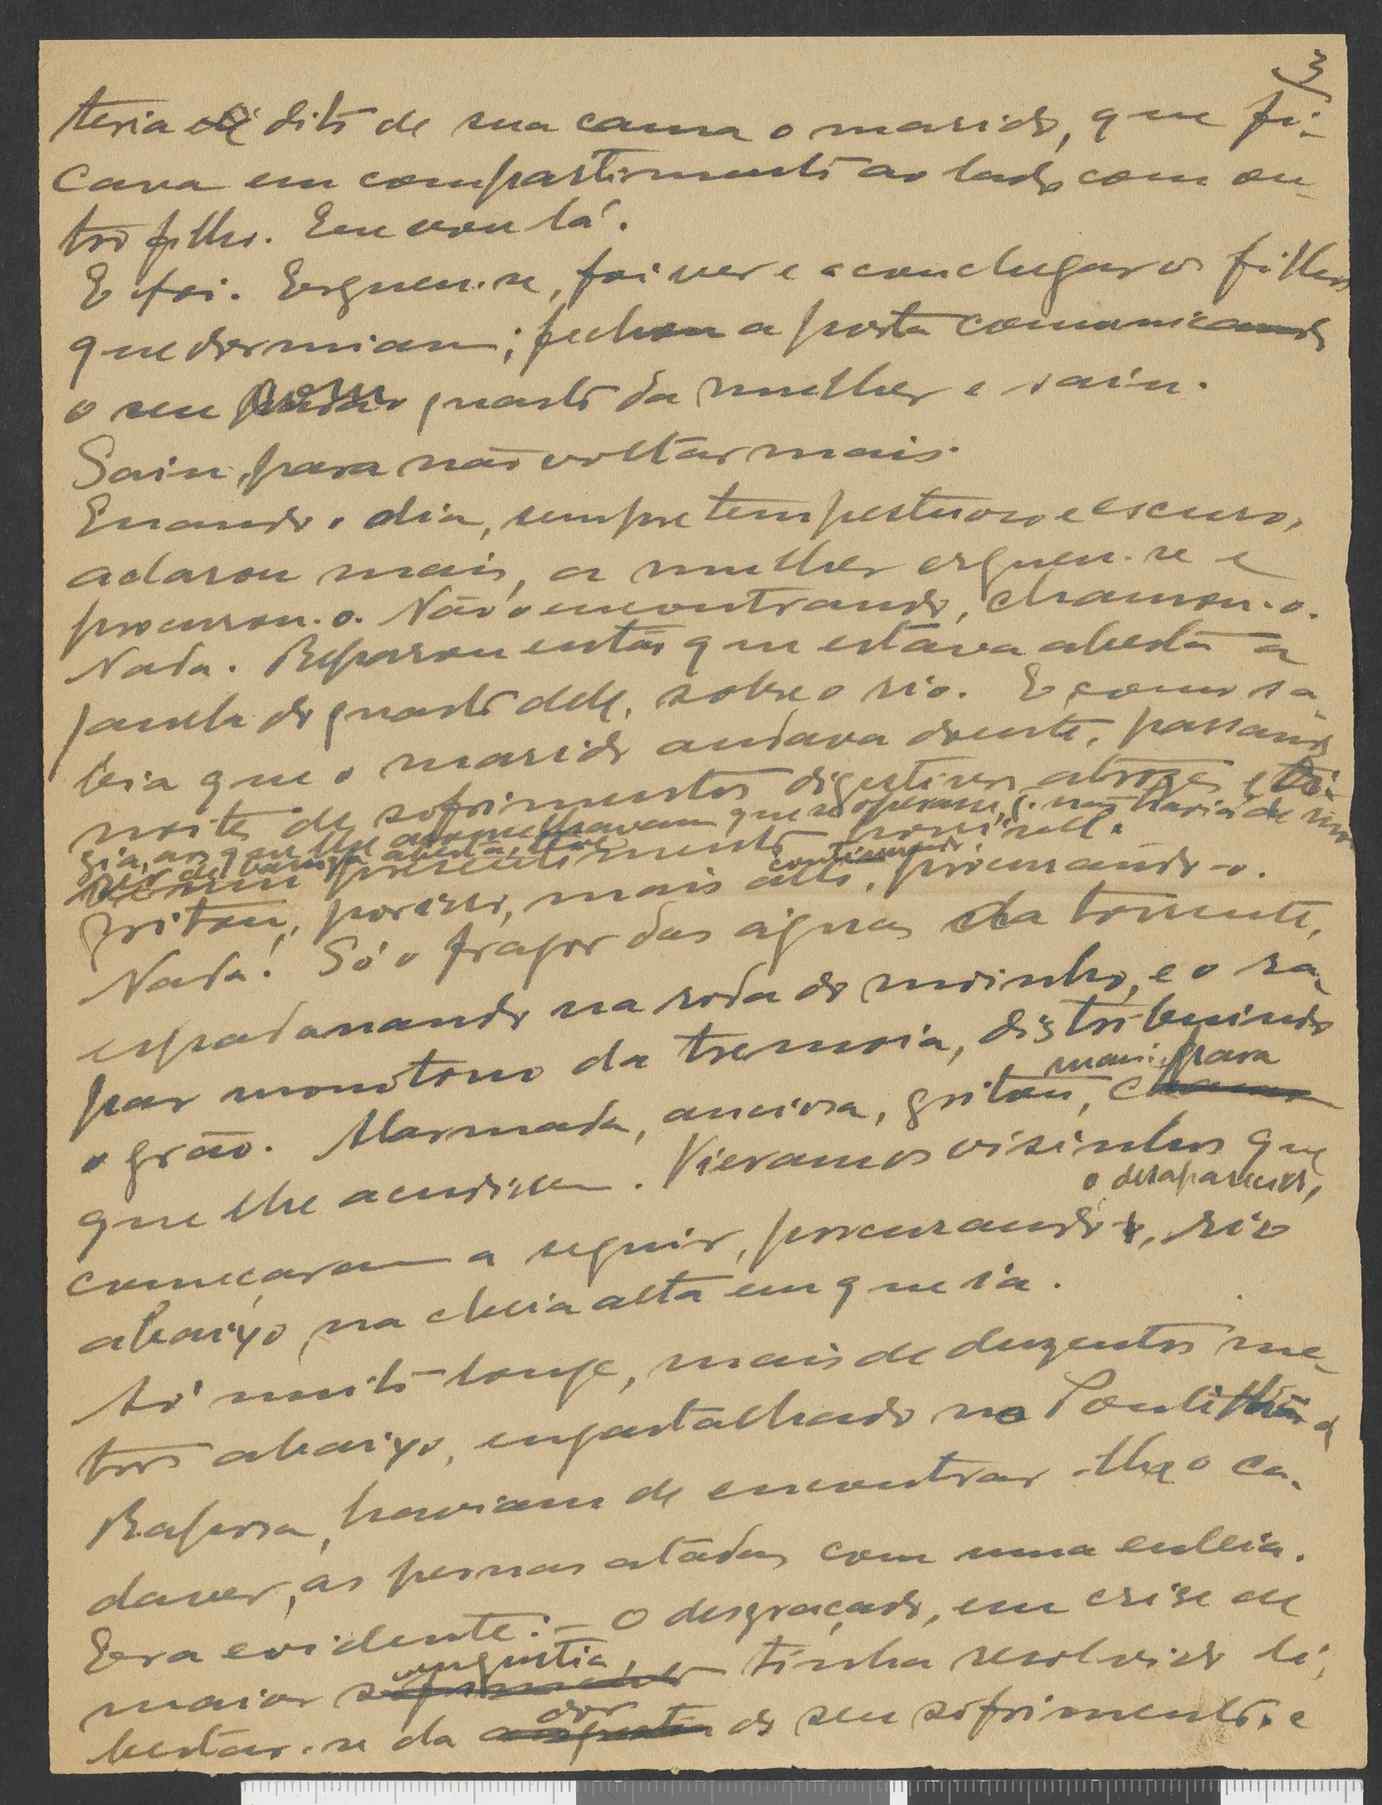 3
teria dito de sua cama o marido, que fi-
cava em compartimento ao lado com ou-
tro filho. Eu vou lá.
E foi. Ergueu-se, foi ver e aconchegar os filhos
que dormiam; fechou a porta comunicando
o seu com o quarto da mulher e saiu.
Saiu, para não voltar mais.
Quando o dia, sempre tempestuoso e escuro,
aclarou mais, a mulher ergueu-se e
procurou-o. Não o encontrando, chamou-o.
Nada. Reparou então que estava aberta a
janela do quarto dele, sobre o rio. E como sa-
bia que o marido andava doente, passando
noites de sofrimentos digestivos atrozes e
gia, a que lhe aconselhavam que se operasse, não havia de
de barriga aberta, teve
um pressentimento horrivel.
Gritou, por isso, mais alto, continuando procurando-o.
Nada! Só o fragor das águas da torrente,
espadanando na roda do moinho, e o ra-
par monótono da tremoia, distribuindo
o grão. Alarmada, anciosa, gritou mais, para
que lhe acudissem. Vieram os visinhos que
o desaparecido,
começaram a seguir, procurando, rio
abaixo, na cheia alta em que ia.
Só muito longe, mais de duzentos me-
tros abaixo, engastalhado no da
Raposa, haviam de encontrar-lhe o ca-
daver, as pernas atadas com uma enleia.
Era evidente: - O desgraçado, em crise de
maior angustia, tinha resolvido li-
bertar-se da dor do seu sofrimento, e